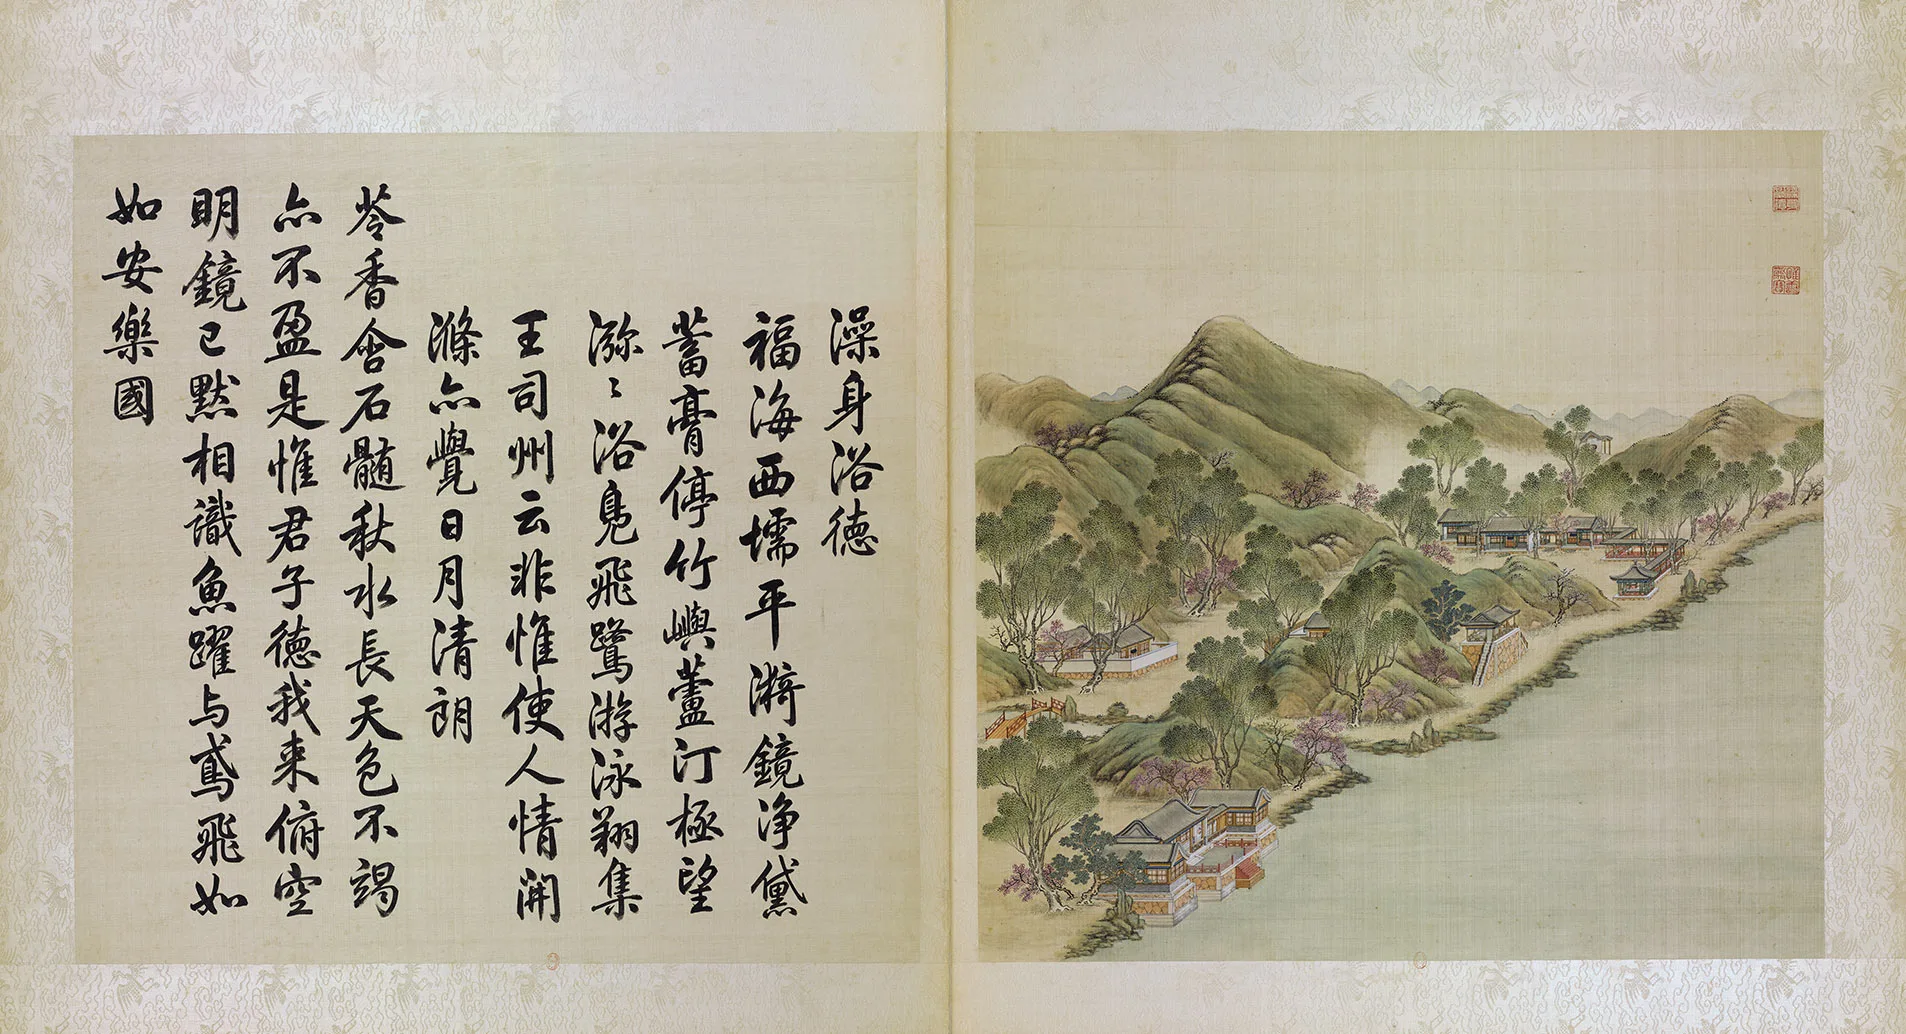 澡身浴德
福海西壖平漪鏡净黛
蓄膏停竹嶼蘆汀極望
㳽〻浴鳧飛鷺游泳翔集
王司州云非惟使人情開
滌亦覺日月清朗
苓香含石髓秋水長天色不竭
亦不盈是惟君子德我来俯空
明鏡已默相識魚躍与鳶飛如
如安樂國